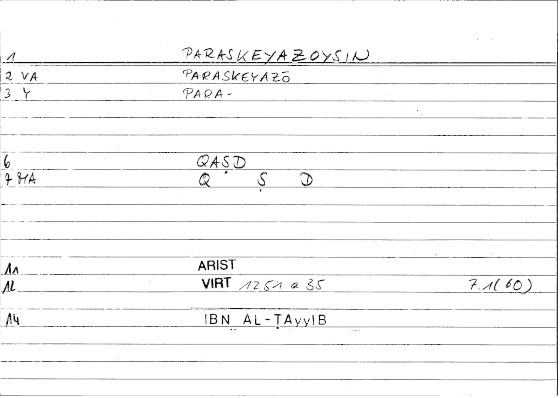 1 PARASKEYAZOYSIN
2 VA PARASKEYAZŌ
3 Y PARA-
6 QAṢD
7 MA Q Ṣ D
11 ARIST
12 VIRT 1251 a 35 7.1(60)
14 IBN AL-ṬAyyIB